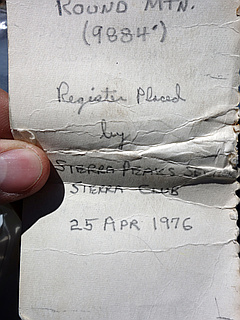 ROUND MTN.
(9884')
Register Placed
by
SIERRA PEAKS
SIERRA CLUB
25 APR 1976